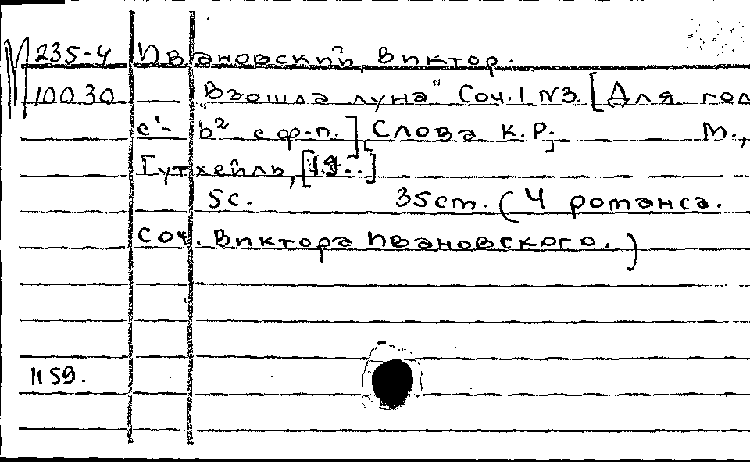 235-4 Ивановский, Виктор.
10030 "Взошла луна" Соч. 1 №3. [Для гол
c¹- b² с ф-п.] [Слова К.Р.] М.,
Гутхейль, [19..]
5с. 35cm. (4 романса.
Соч. Виктора Ивановского.)
1159.